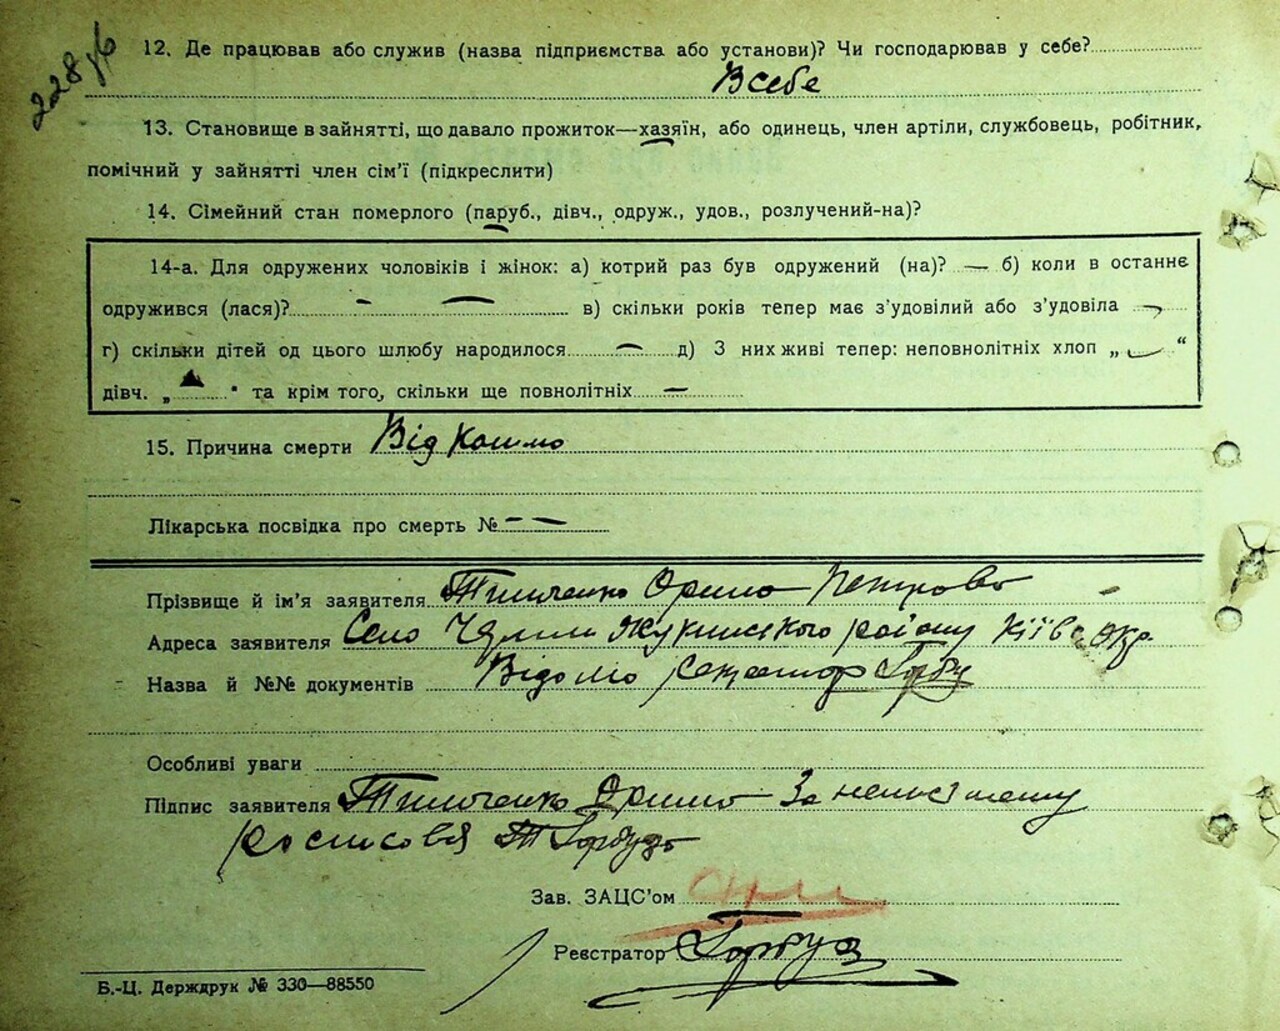 228 зв
12. Де працював або служив (назва підприємства або установи)? Чи господарював у себе?
В себе
13. Становище в зайнятті, що давало прожиток—хазяїн, або одинець, член артіли, службовець, робітник,
помічний у зайнятті член сім’ї (підкреслити)
14. Сімейний стан померлого (паруб., дівч., одруж., удов., розлучений-на)?
14-а. Для одружених чоловіків і жінок: а) котрий раз був одружений (на)? — б) коли в останнє
одружився (лася)? — — в) скільки років тепер має з’удовілий або з’удовіла —
г) скільки дітей од цього шлюбу народилося — д) З них живі тепер: неповнолітніх хлоп „ — “
дівч. „ “ та крім того, скільки ще повнолітніх —
15. Причина смерти Від
Лікарська посвідка про смерть № — —
Прізвище й ім’я заявителя Тимченко Орина Петрова
Адреса заявителя Село Жукинського району Київ. Окр.
Назва й №№ документів Відомо секретар
Особливі уваги
Підпис заявителя Тимченко Орина За
росписовся Т Горбуза
Зав. ЗАЦС’ом
Реєстратор Горбуза
Б.-Ц. Держдрук № 330—88550